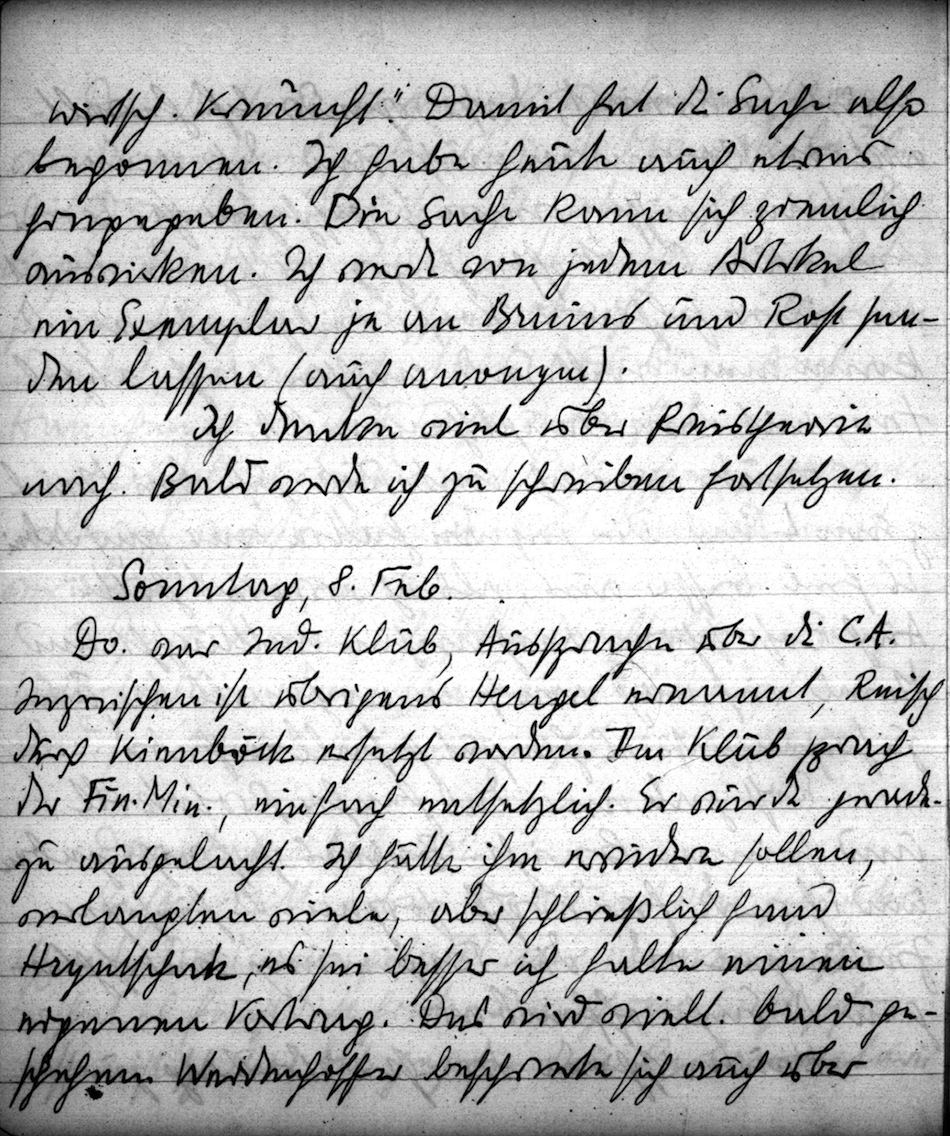 wirtsch. Vernunft". Damit hat di Sache also
begonnen. Ich habe heute auch etwas
hergegeben. Die Sache kann sich ziemlich
auswirken. Ich werde von jedem Artikel
ein Exemplar je an Bruins und Rost sen-
den lassen (auch anonym).
Ich denke viel über Preistheorie
nach. Bald werde ich zu schreiben fortsetzen.
Sonntag, 8. Feb.
Do. war Ind. Klub, Aussprache über di C.A.
Inzwischen ist übrigens Hengel ernannt, Reisch
durch Kienböck ersetzt worden. Im Klub sprach
der Fin. Min., einfach entsetzlich. Er wurde gerade-
zu ausgelacht. Ich hätte ihm erwidern sollen,
verlangten viele, aber schließlich fand
Hryntschak, es sei besser ich halte einen
eigenen Vortrag. Das wird viell. bald ge-
schehen. Weidenhoffer beschwerte sich auch über